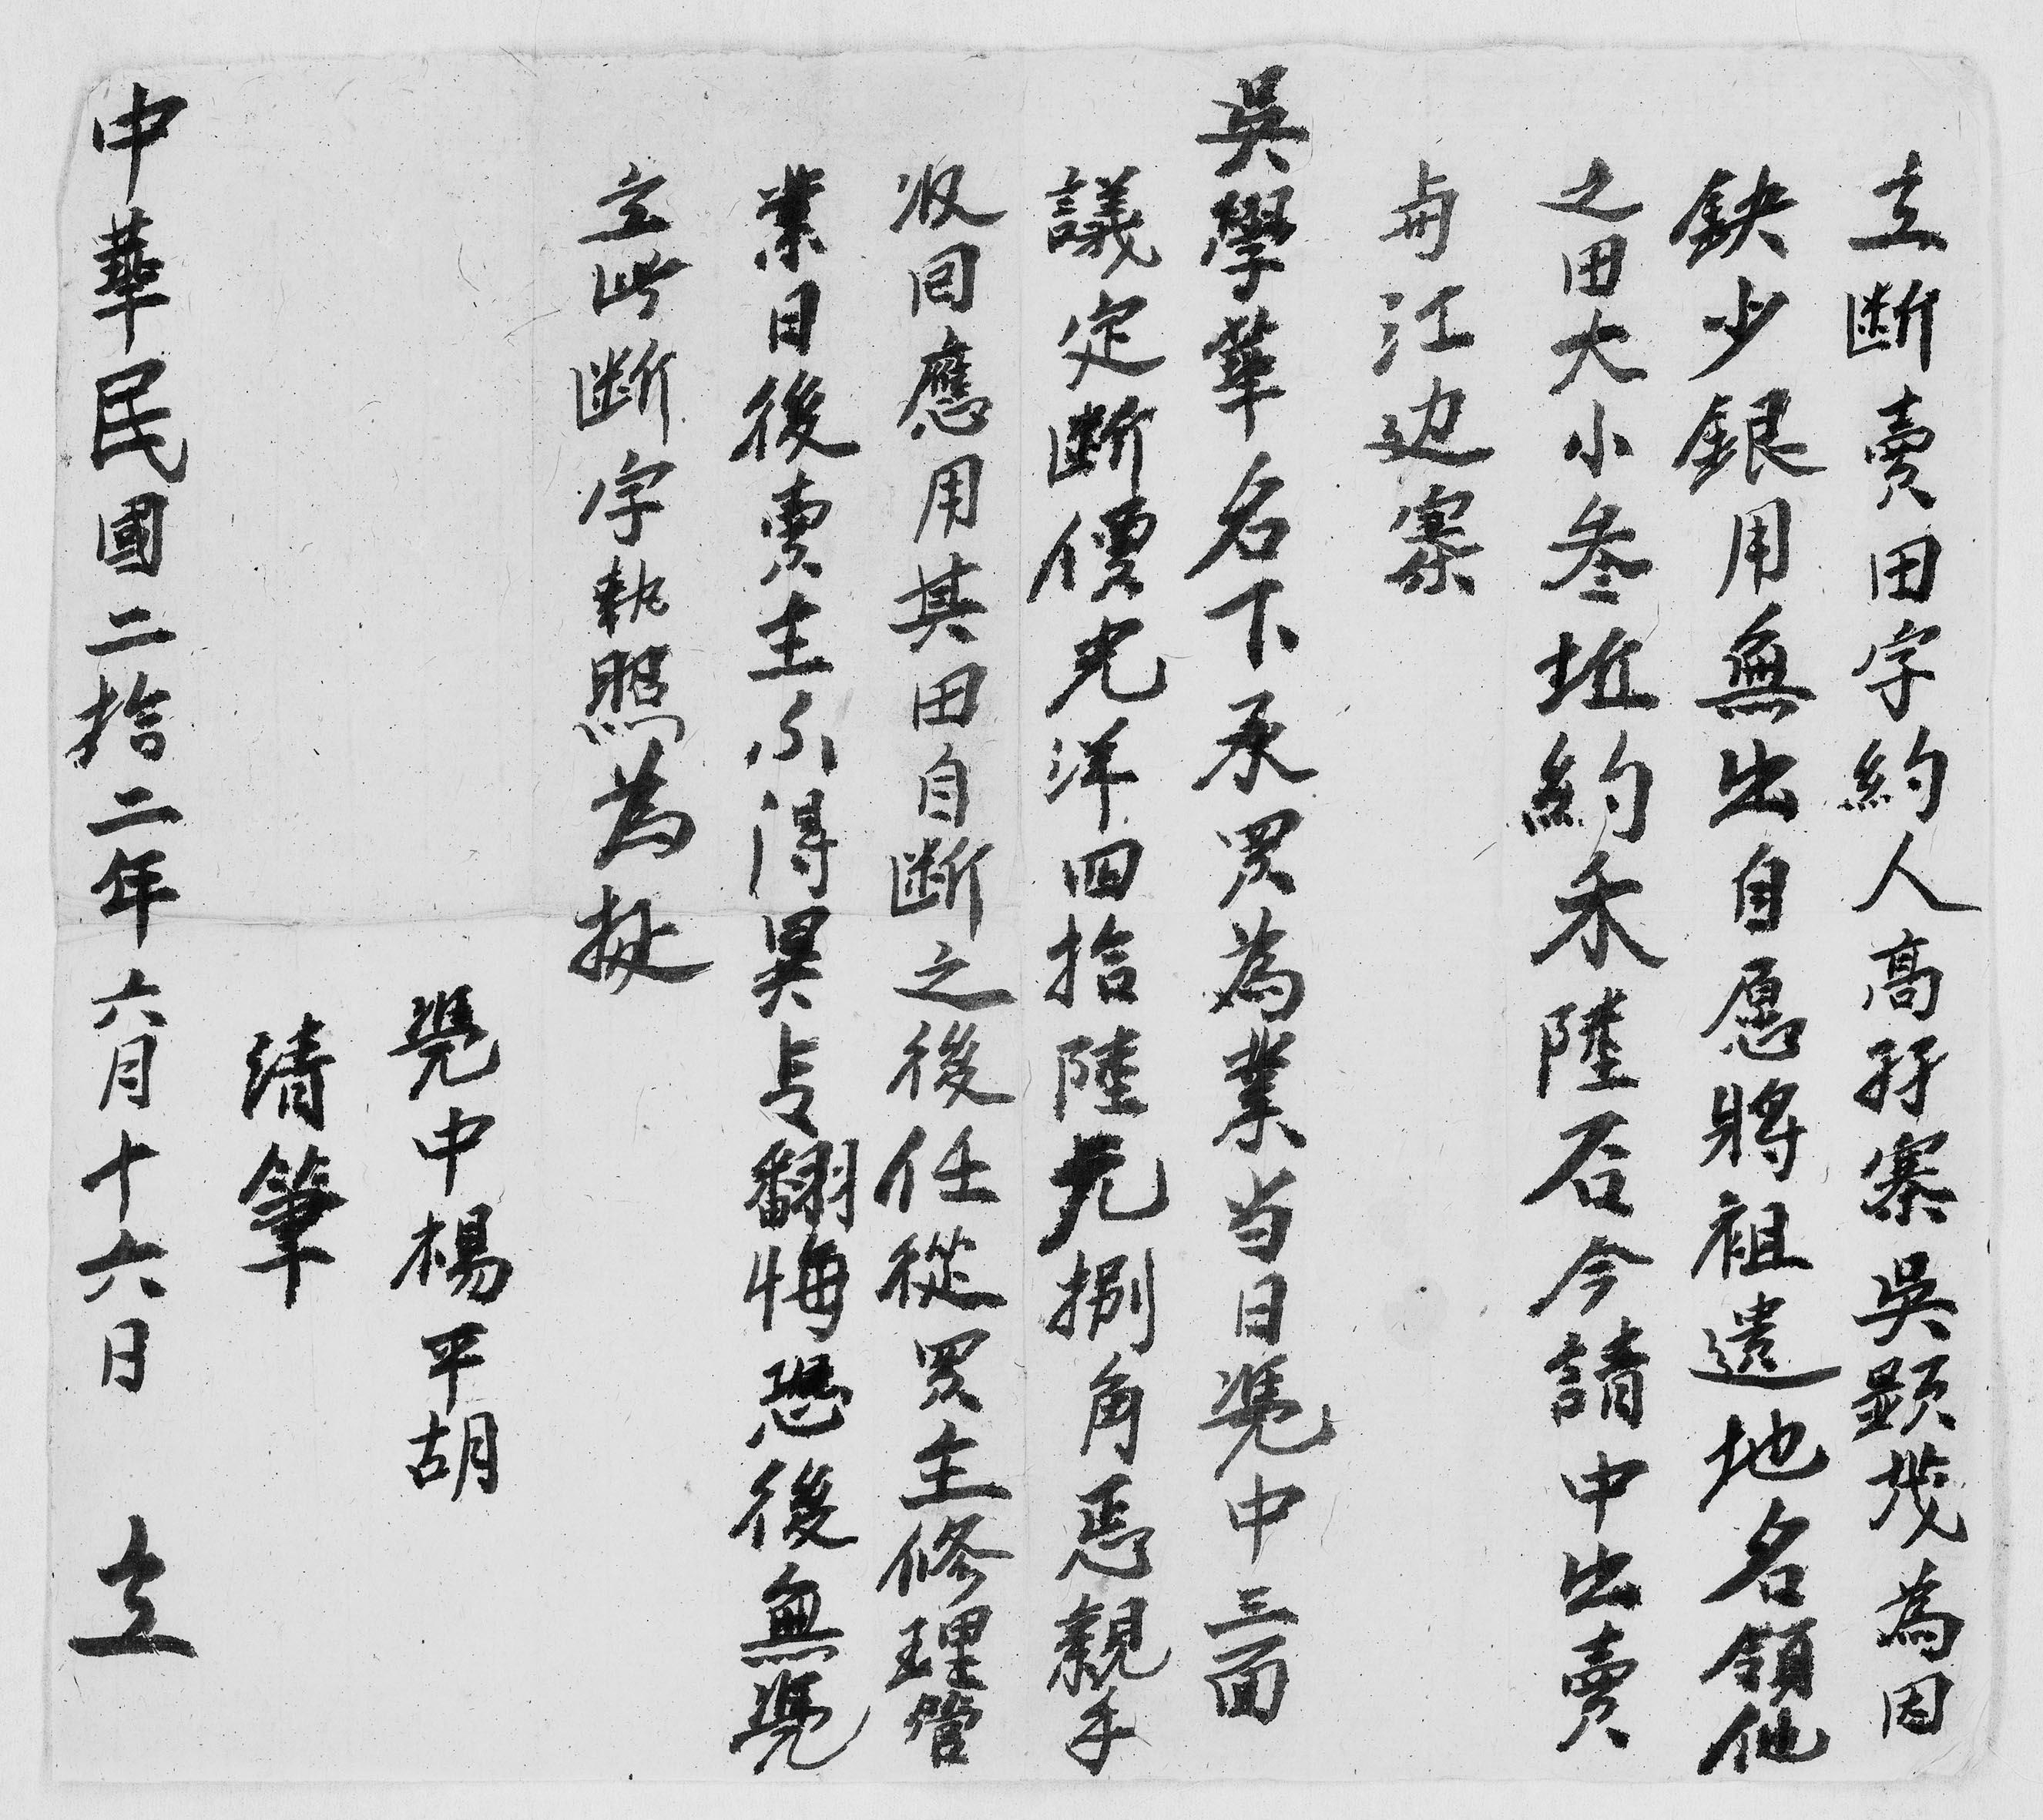 立断賣田字約人髙孖寨吳顕茂為因
缺少銀用無出自愿將祖遺地名領他
之田大小叁坵約禾陸石今請中出賣
与江边寨
吳學華名下承買為業当日凭中三面
議定断價光洋四拾陸元捌角恁親手
收回應用其田自断之後任從買主修理管
業日後賣主不得異言翻悔恐後無凭
立此断字執照為據
凭中楊平胡
清筆
中華民國二拾二年六月十六日 立